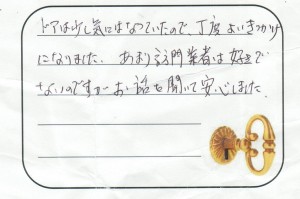 ドアは少し気にはなっていたので、丁度よいきっかけ
になりました。あまり訪問業者は好きで
ないのですがお話を聞いて安心しました。